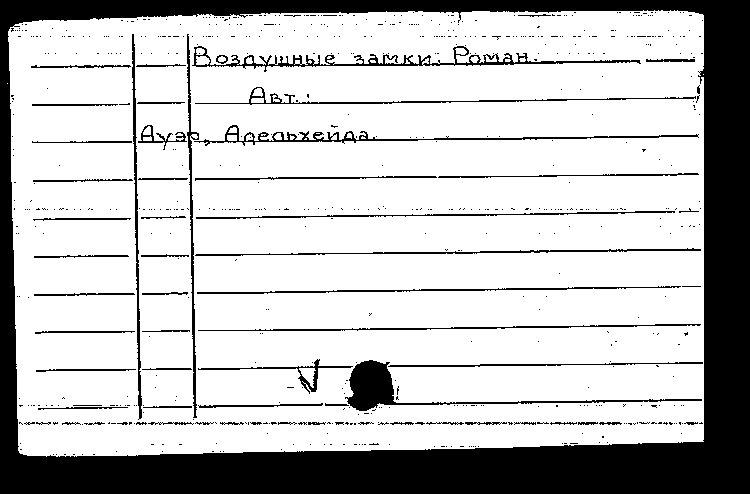 Воздушные замки. Роман.
Авт.:
Ауэр, Адельхейда.